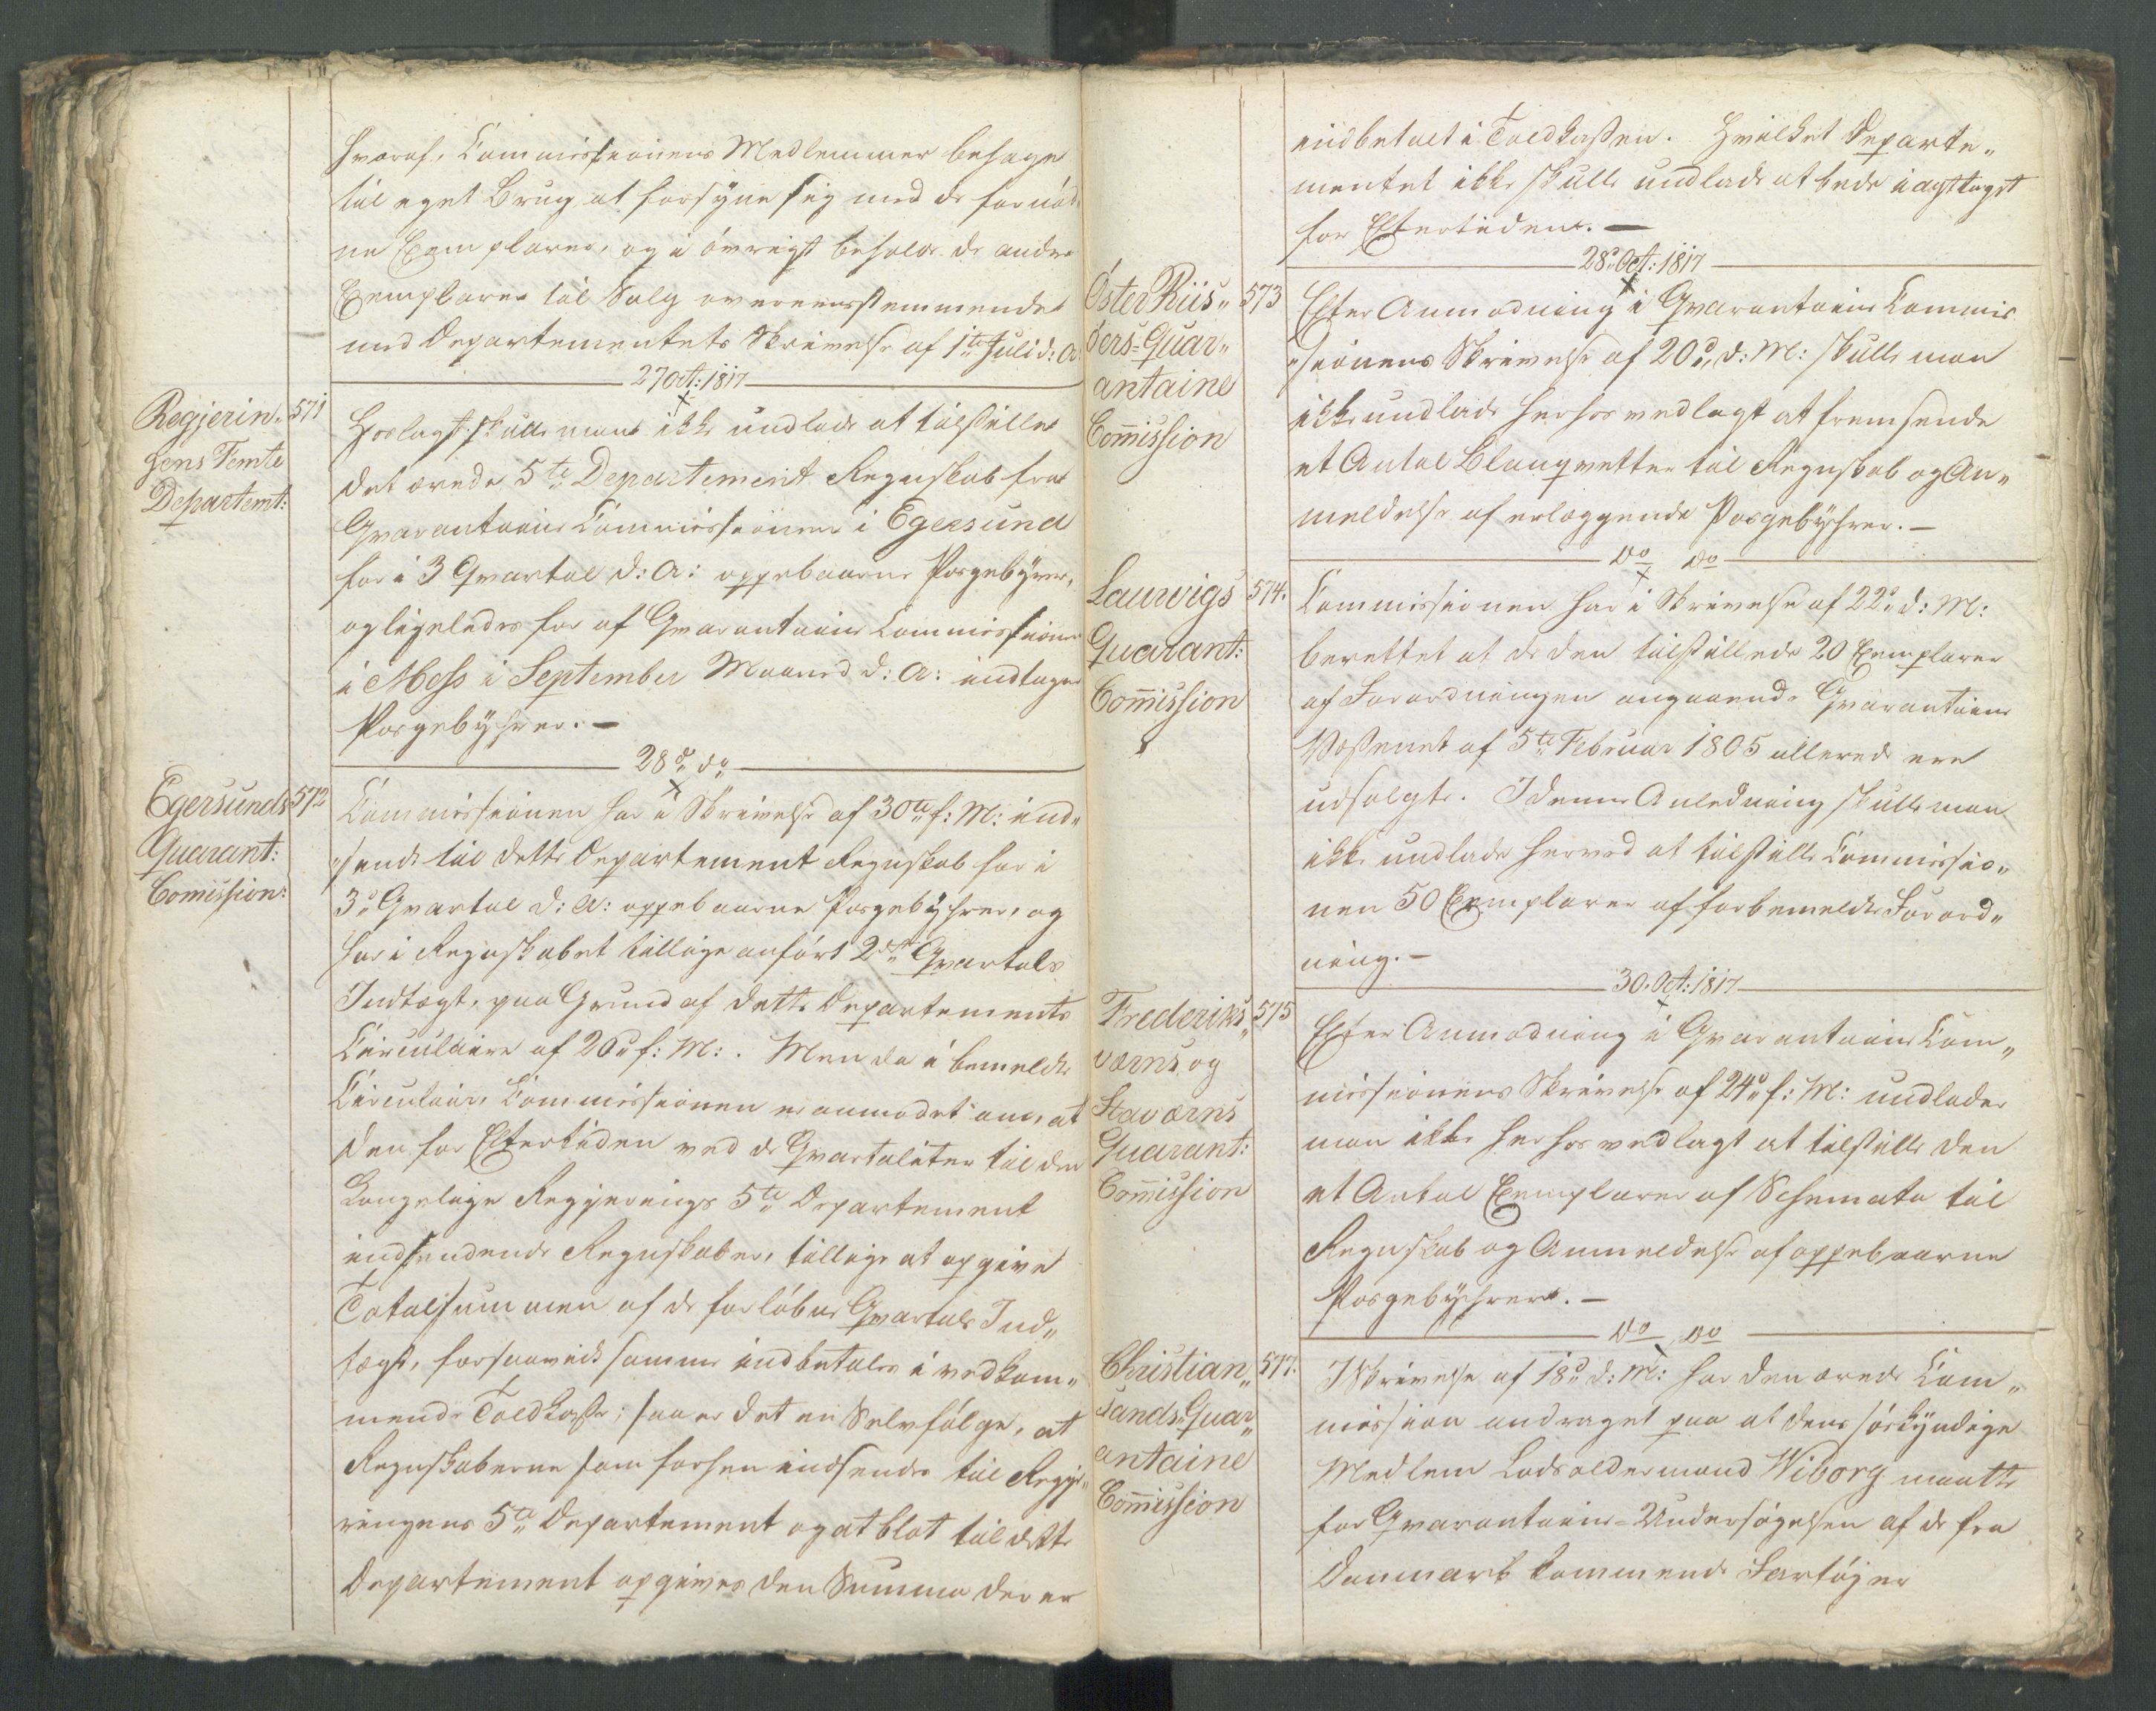 hvoraf Commissionens Medlemmer behage
til eget Brug at forsyne sig med de fornöd„
ne Exemplarer, og i övrigt beholde de andre
Exemplarer til Salg overeensstemmende
med Departementets Skrivelse af 1ste Juli d: A:
27 Oct: 1817
Regjerin„
gens Femte
Departemt:
571
Hoslagt skulle man ikke undlade at tilstille
det ærede 5te Departement Regnskab fra
Qvarantaine Commissionen i Egersund
for i 3 Qvartal d: A: oppebaarne Pasgebyrer,
og ligeledes for af Qvarantaine Commissionen
i Moss i September Maaned d: A: indtagne
Pasgebyhrer. —
28de do
Egersunds
Quarant:
Comission:
572
Commissionen har i Skrivelse af 30te f: M: ind„
„sendt til dette Departement Regnskab for i
3de Qvartal d: A: oppebaarne Pasgebyhrer, og
har i Regnskabet tillige anfört 2det Qvartals
Indtægt, paa Grund af dette Departements
Circulaire af 26de f: M:. Men da i bemeldte
Circulaire Commissionen er anmodet om, at
den for Eftertiden ved de Qvartaliter til den
Kongelige Regjerings 5te Departement
indsendende Regnskaber, tillige at opgive
Totalsummen af de forlöbne Qvartals Ind„
tægt, forsaavidt samme indbetales i vedkom„
mende Toldkasse; saa er det en Selvfölge, at
Regnskaberne som forhen indsendes til Regje„
ringens 5te Departement og at blot til dette
Departement opgives den Summa der er
indbetalt i Toldkassen. Hvilket Departe„
mentet ikke skulle undlade at bede iagttaget
for Eftertiden. —
28de Oct: 1817
Öster Riis„
öers=Quar„
antaine
Comission
573
Efter Anmodning i Qvarantaine Commis
„sionens Skrivelse af 20de d: M: skulle man
ikke undlade herhos vedlagt at fremsende
et Antal Blanqvetter til Regnskab og An„
meldelse af erlæggende Pasgebyhrer. —
do do
Laurvigs
Quarant:
Comission
574.
Commissionen har i Skrivelse af 22de d: M:
berettet at de den tilstillede 20 Exemplarer
af Forordningen angaaende Qvarantaine
Væsenet af 5te Februar 1805 allerede ere
udsolgte. I denne Anledning skulle man
ikke undlade herved at tilstille Commissio„
nen 50 Exemplarer af forbemeldte Forord„
ning. —
30. Oct: 1817
Frederiks„
værns og
Staværns
Quarant:
Comission
575
Efter Anmodning i Qvarantaine Com„
missionens Skrivelse af 24de f: M: undlader
man ikke herhos vedlagt at tilstille den
et Antal Exemplarer af Schemata til
Regnskab og Anmeldelse af oppebaarne
Pasgebyhrer. —
do do
Christian„
sands Quar„
antaine
Comission
577.
I Skrivelse af 18de d: M: har den ærede Com„
mission andraget paa at dens sökyndige
Medlem Lodsoldermand Wiborg maatte
for Qvarantaine=Undersögelsen af de fra
Danmark kommende Fartöjer